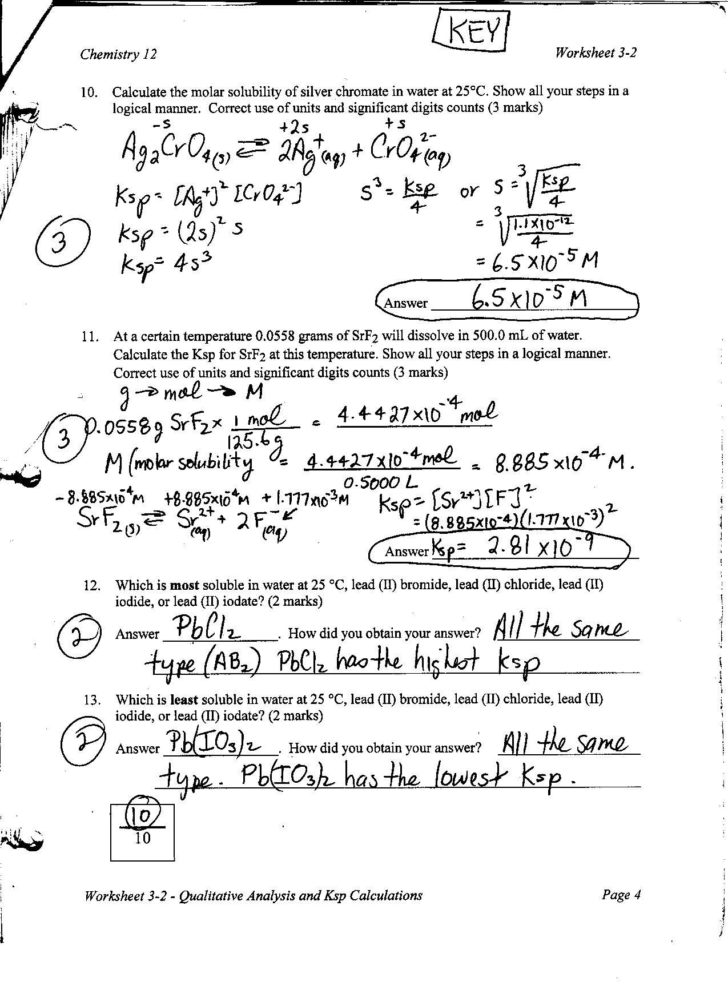 KEY
Chemistry 12 Worksheet 3-2
10. Calculate the molar solubility of silver chromate in water at 25°C. Show all your steps in a
logical manner. Correct use of units and significant digits counts (3 marks)
-s +2s +s
Ag₂CrO₄(s) ⇌ 2Ag⁺(aq) + CrO₄²⁻(aq)
Ksp = [Ag⁺]² [CrO₄²⁻] s³ = Ksp/4 or s = ³√(Ksp/4)
3 Ksp = (2s)² s = ³√(1.1x10⁻¹²/4)
Ksp = 4s³ = 6.5x10⁻⁵ M
Answer 6.5x10⁻⁵ M
11. At a certain temperature 0.0558 grams of SrF₂ will dissolve in 500.0 mL of water.
Calculate the Ksp for SrF₂ at this temperature. Show all your steps in a logical manner.
Correct use of units and significant digits counts (3 marks)
g → mol → M
3 0.0558g SrF₂ x 1 mol/125.6g = 4.4427x10⁻⁴ mol
M (molar solubility = 4.4427x10⁻⁴ mol/0.5000 L = 8.885 x10⁻⁴ M.
-8.885x10⁻⁴M +8.885x10⁻⁴M +1.777x10⁻³M Ksp = [Sr²⁺][F⁻]²
SrF₂(s) ⇌ Sr²⁺(aq) + 2F⁻(aq) = (8.885x10⁻⁴)(1.777x10⁻³)²
Answer Ksp = 2.81 x10⁻⁹
12. Which is most soluble in water at 25 °C, lead (II) bromide, lead (II) chloride, lead (II)
iodide, or lead (II) iodate? (2 marks)
2 Answer PbCl₂. How did you obtain your answer? All the same
type (AB₂) PbCl₂ has the highest Ksp
13. Which is least soluble in water at 25 °C, lead (II) bromide, lead (II) chloride, lead (II)
iodide, or lead (II) iodate? (2 marks)
2 Answer Pb(IO₃)₂. How did you obtain your answer? All the same
type. Pb(IO₃)₂ has the lowest Ksp.
10
10
Worksheet 3-2 - Qualitative Analysis and Ksp Calculations Page 4